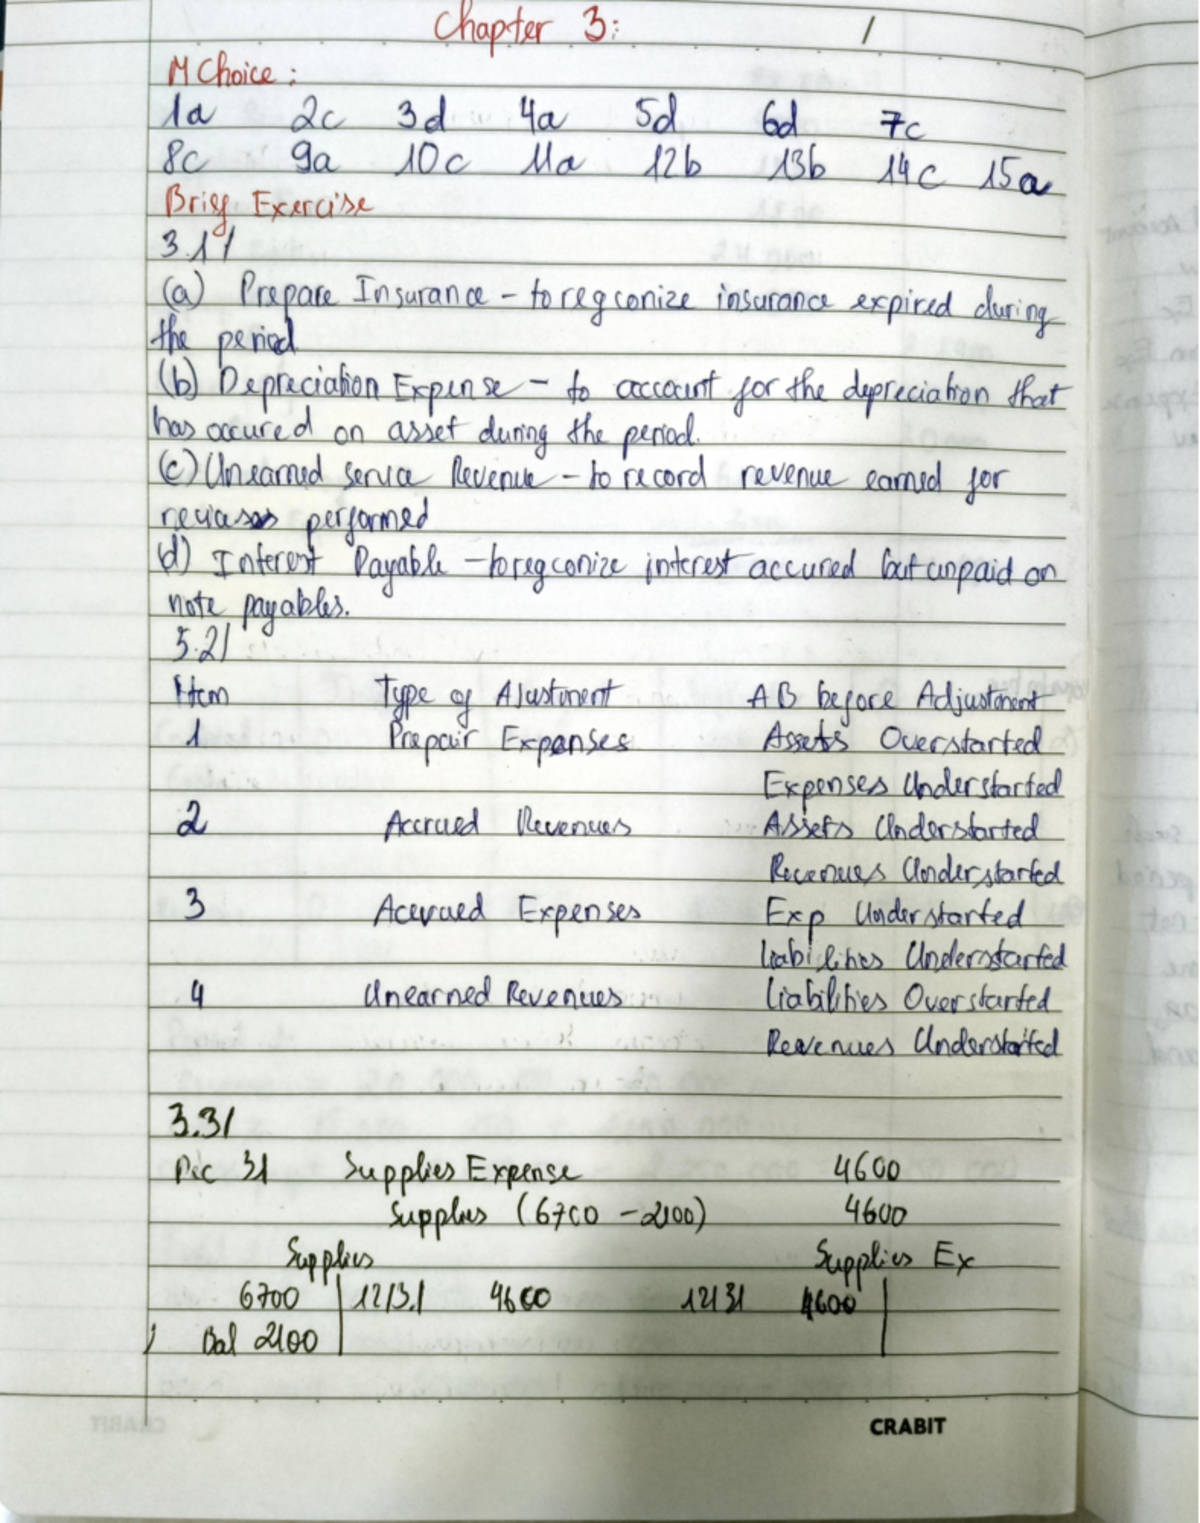 Chapter 3:
M Choice:
1a 2c 3d 4a 5d 6d 7c
8c 9a 10c 11a 12b 13b 14c 15a
Brief Exercise
3.1/
(a) Prepare Insurance - to regconize insurance expired during
the period
(b) Depreciation Expense - to account for the depreciation that
has occured on asset during the period.
(c) Unearned service Revenue - to record revenue earned for
performed
(d) Interest Payable - to regconize interest accured but unpaid on
note payables.
3.2/
Item Type of Ajustment AB before Adjustment
1 Prepair Expenses Assets Overstarted
Expenses Understarted
2 Accrued Revenues Assets Understarted
Revenues Understarted
3 Accrued Expenses Exp Understarted
Liabilities Understarted
4 Unearned Revenues Liabilities Overstarted
Revenues Understarted
3.3/
Dec 31 Supplies Expense 4600
Supplies (6700 - 2100) 4600
Supplies Supplies Ex
6700 12/31 4600 12/31 4600
Bal 2100
CRABIT